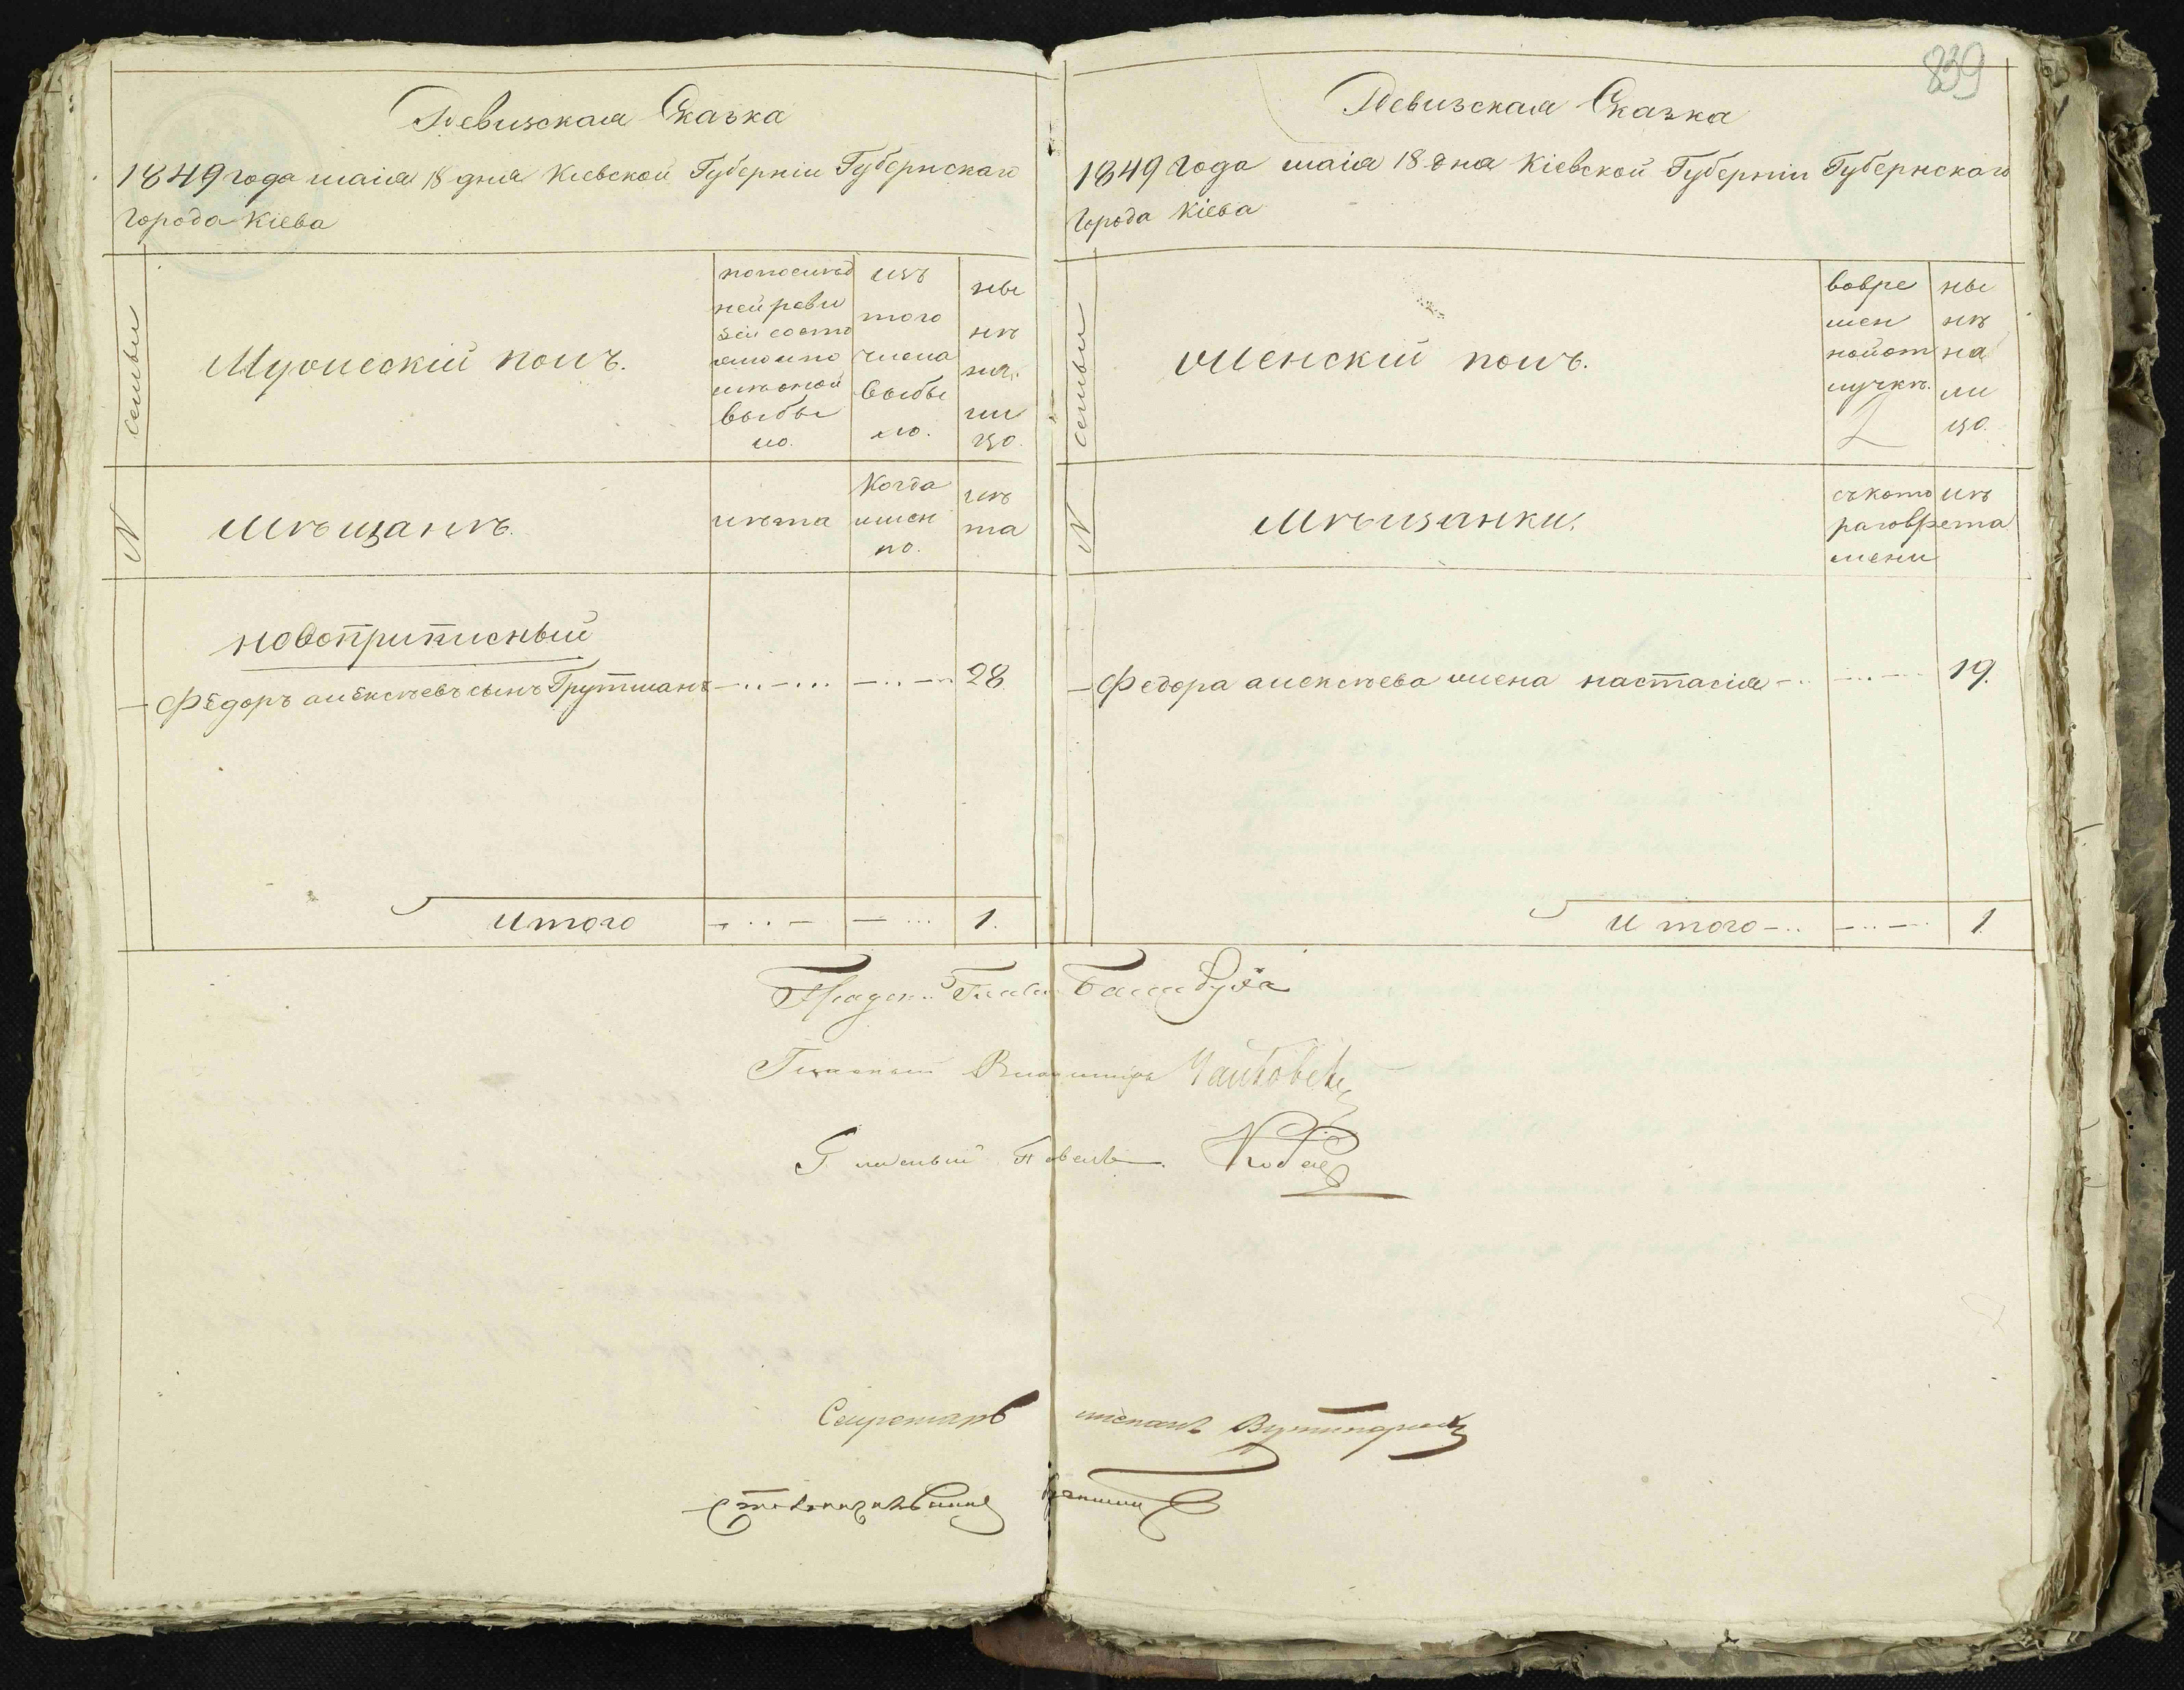 Ревизская Сказка
1849 года маія 18 дня Кіевской Губерніи Губернскаго
города Кіева
семьи
Мужескій полъ.
по послѣд
ней реви
зіи состо
яло и по
слѣ оной
выбы
ло.
изъ
того
числа
выбы
ло.
ны
нѣ
на
ли
цо.
N
Мѣщанѣ.
лѣта
Когда
имен
но.
лѣ
та
новоприписный
Федоръ алексѣевъ сынъ Грутманъ 28
Итого 1.
839
Ревизская Сказка
1849 года маія 18 дня Кіевской Губерніи Губернскаго
города Кіева
семьи
Женскій полъ.
во вре
мен
ной от
лучкѣ.
ны
нѣ
на
ли
цо.
N
Мѣщанки.
съ кото
раго вре
мени
лѣ
та
Федора алексѣева жена настасія 19.
Итого 1
Гласный Владимиръ
Гласный
Секретарь